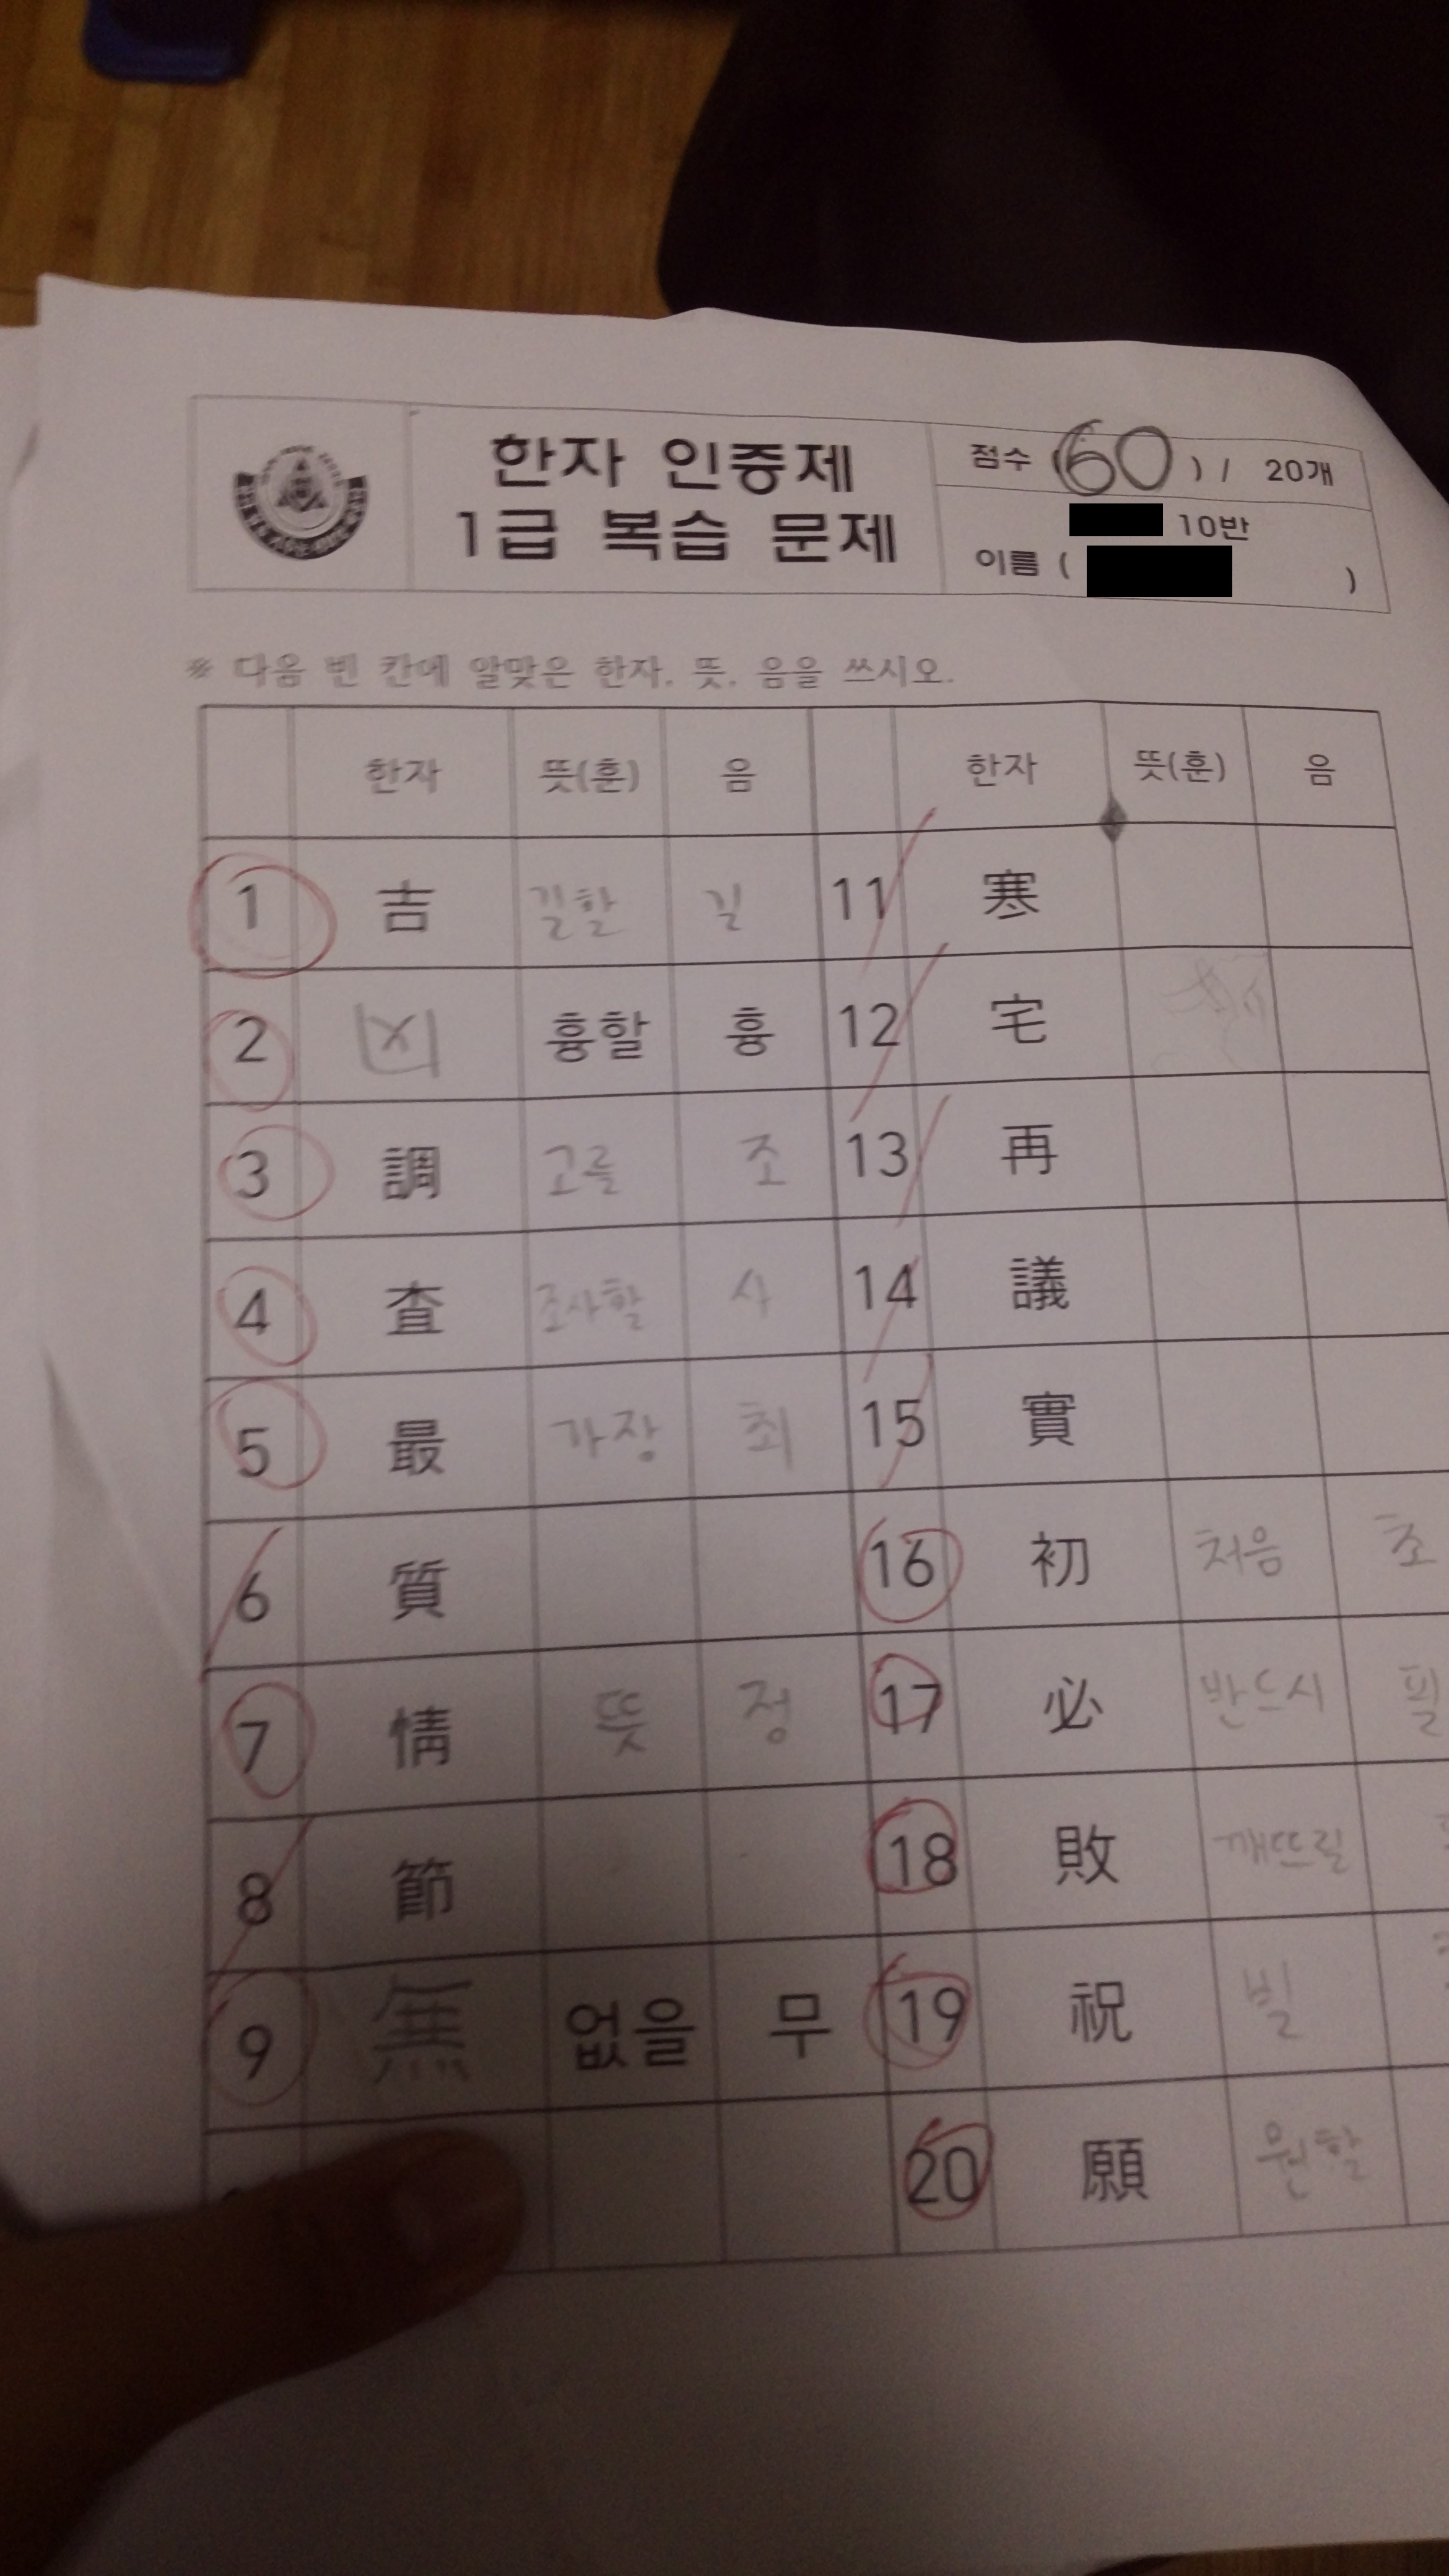 한자 인증제
1급 복습 문제
점수 (60) / 20개
10반
이름 ( )
※ 다음 빈 칸에 알맞은 한자, 뜻, 음을 쓰시오.
한자 뜻(훈) 음 한자 뜻(훈) 음
1 吉 길할 길 11 寒
2 凶 흉할 흉 12 宅
3 調 고를 조 13 再
4 査 조사할 사 14 議
5 最 가장 최 15 實
6 質 16 初 처음 초
7 情 뜻 정 17 必 반드시 필
8 節 18 敗 깨뜨릴
9 無 없을 무 19 祝 빌
20 願 원할